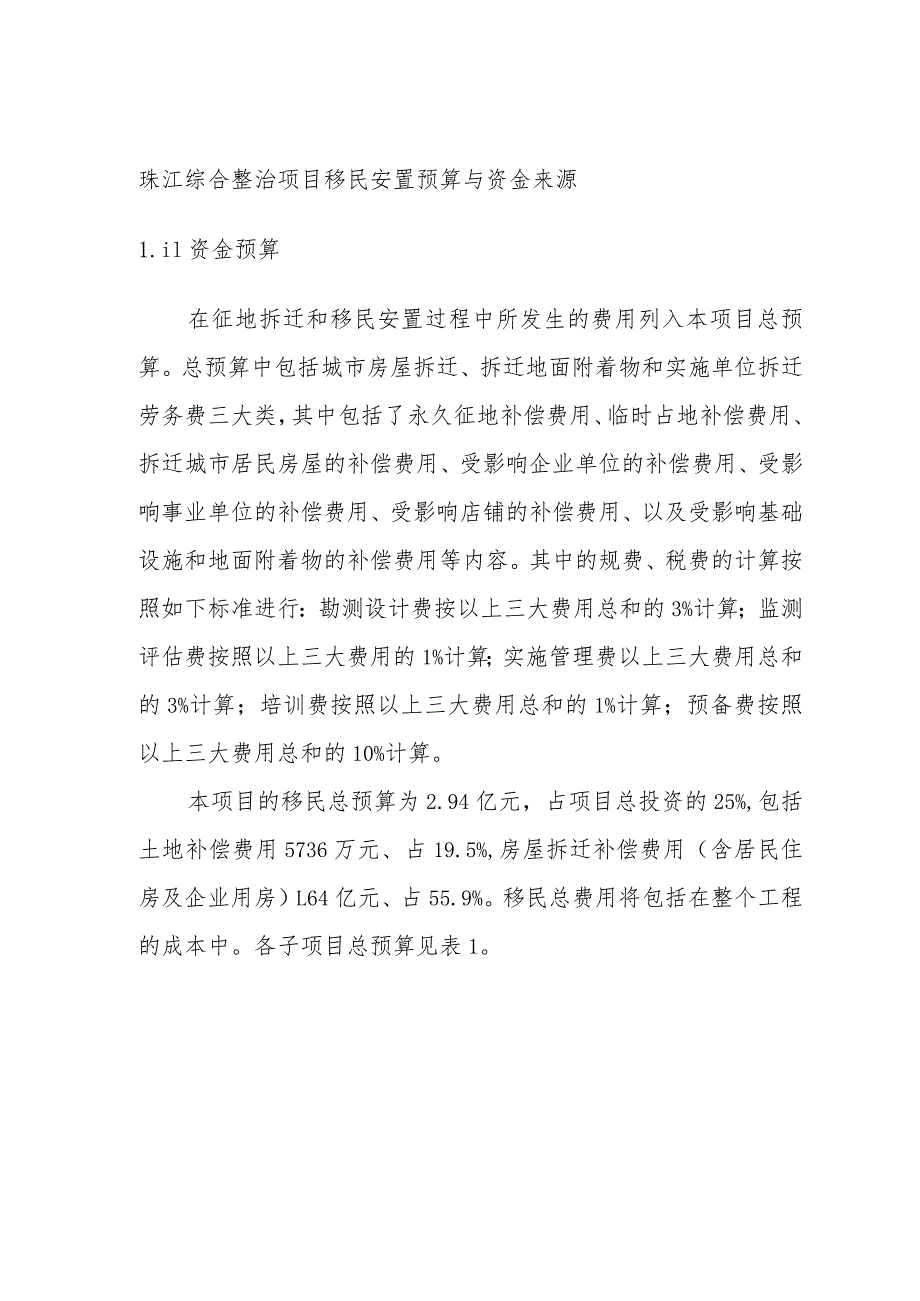 珠江综合整治项目移民安置预算与资金来源
1.il资金预算
在征地拆迁和移民安置过程中所发生的费用列入本项目总预
算。总预算中包括城市房屋拆迁、拆迁地面附着物和实施单位拆迁
劳务费三大类,其中包括了永久征地补偿费用、临时占地补偿费用、
拆迁城市居民房屋的补偿费用、受影响企业单位的补偿费用、受影
响事业单位的补偿费用、受影响店铺的补偿费用、以及受影响基础
设施和地面附着物的补偿费用等内容。其中的规费、税费的计算按
照如下标准进行：勘测设计费按以上三大费用总和的3%计算；监测
评估费按照以上三大费用的1%计算；实施管理费以上三大费用总和
的3%计算；培训费按照以上三大费用总和的1%计算；预备费按照
以上三大费用总和的10%计算。
本项目的移民总预算为2.94亿元，占项目总投资的25%,包括
土地补偿费用5736万元、占19.5%,房屋拆迁补偿费用（含居民住
房及企业用房）L64亿元、占55.9%。移民总费用将包括在整个工程
的成本中。各子项目总预算见表1。